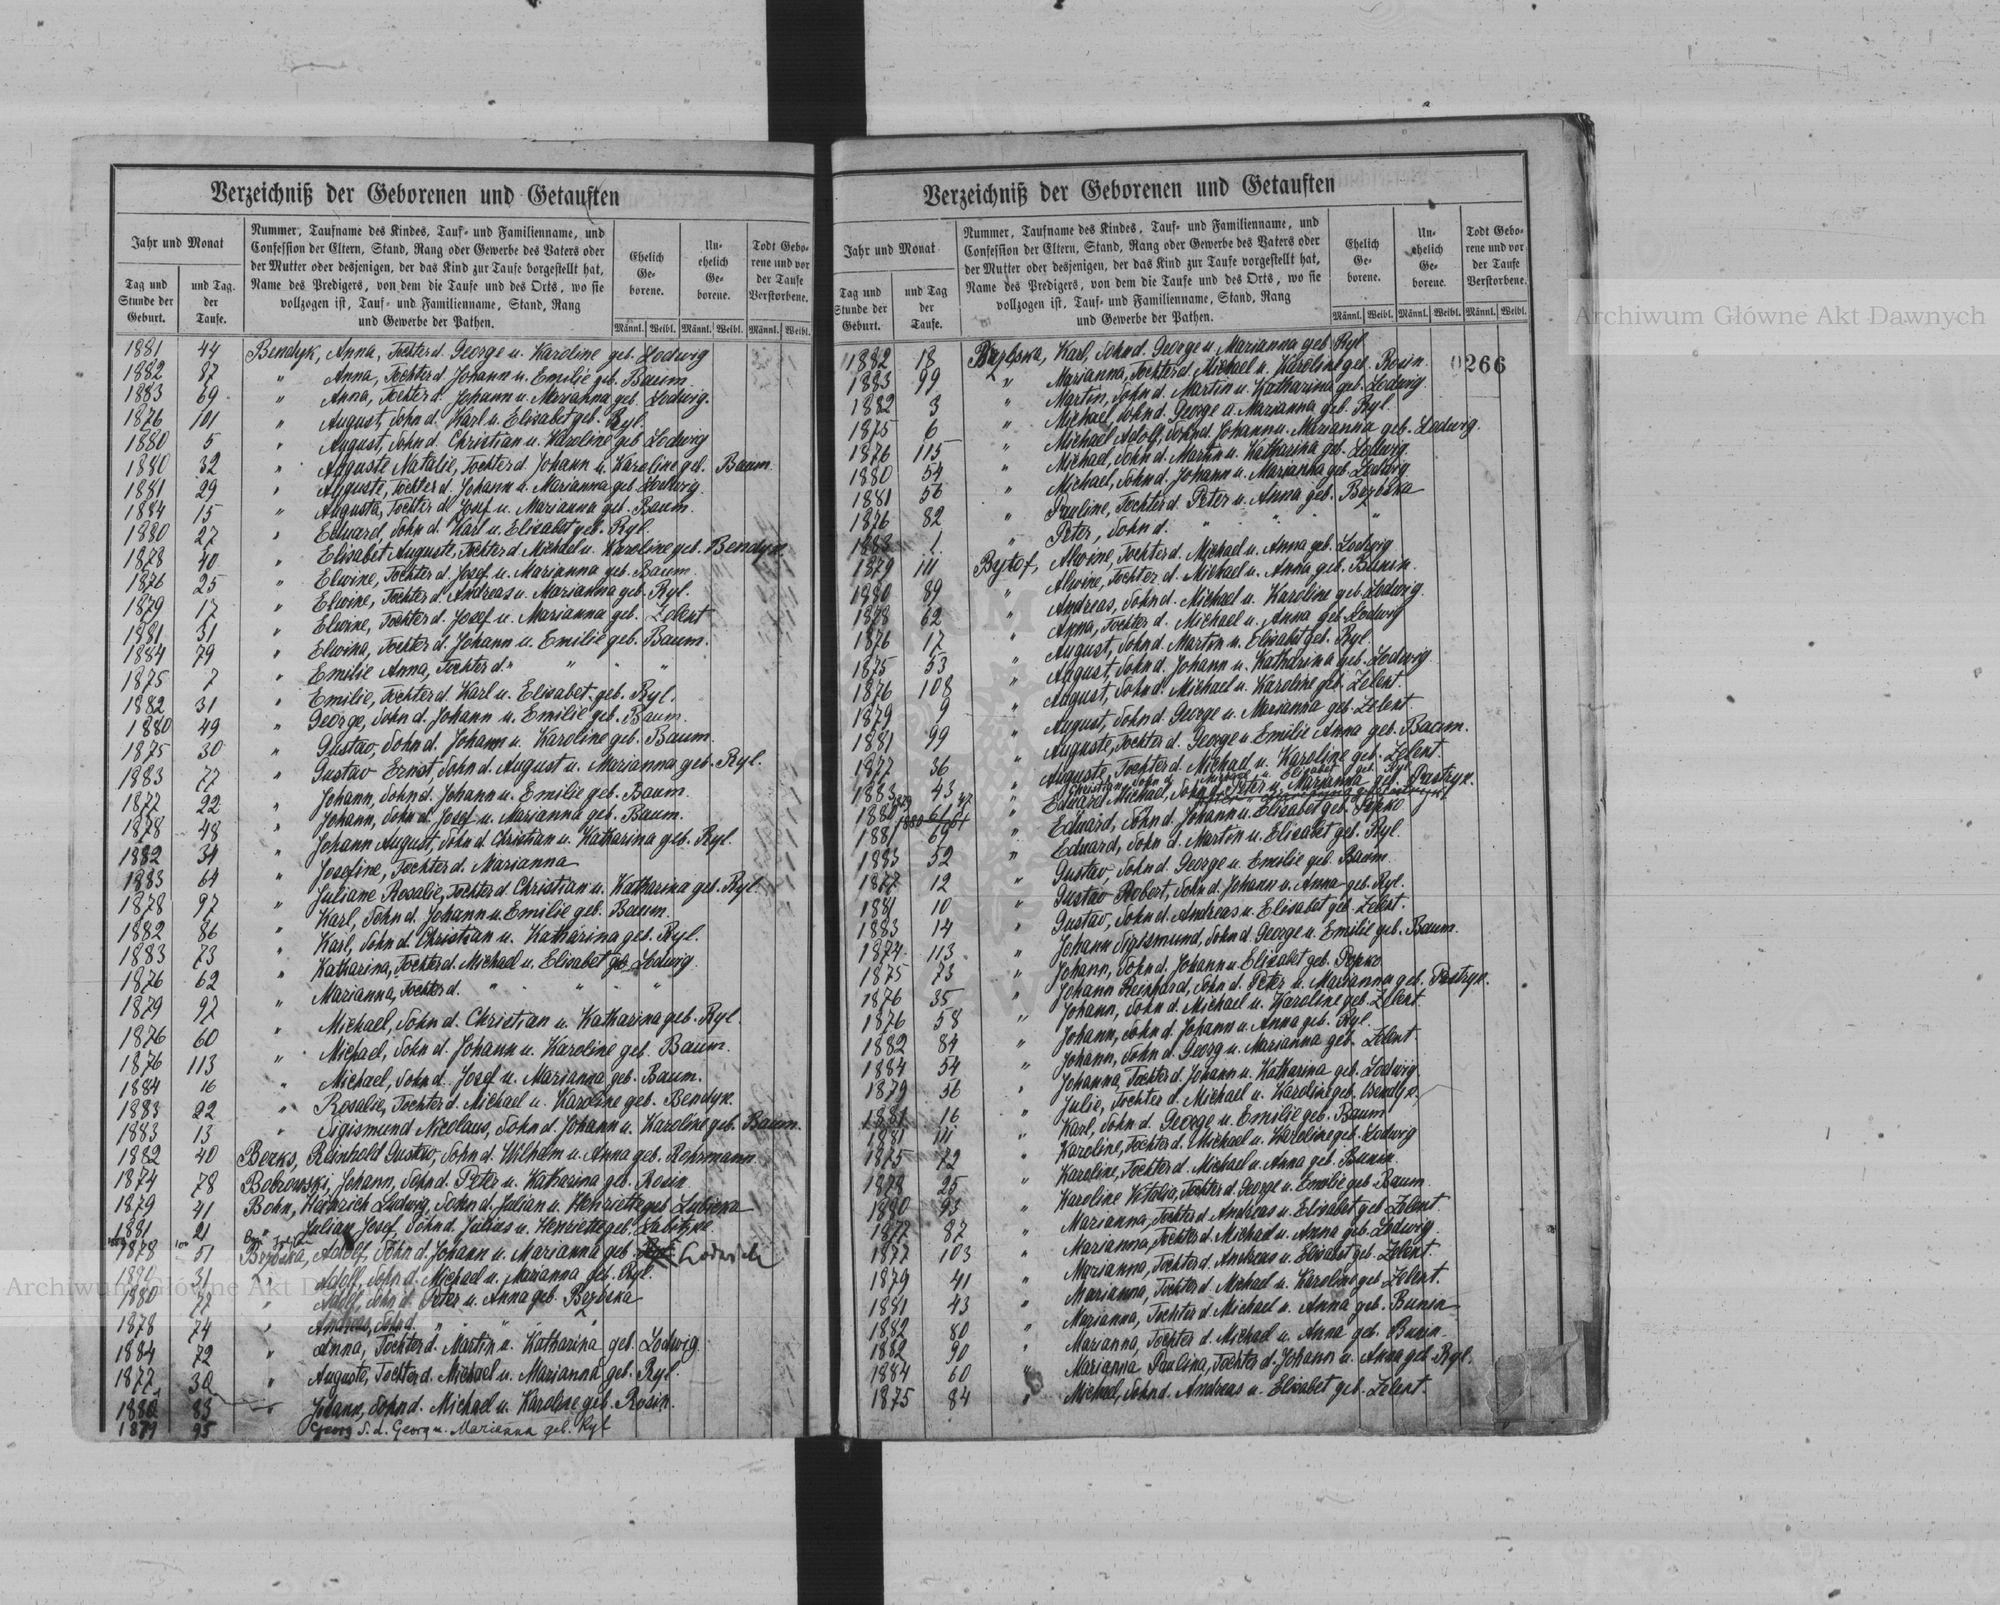 Verzeichniß der Geborenen und Getauften
Jahr und Monat
Tag und Stunde der Geburt.
und Tag. der Taufe.
Nummer, Taufname des Kindes, Tauf- und Familienname, und
Confession der Eltern, Stand, Rang oder Gewerbe des Vaters oder
der Mutter oder desjenigen, der das Kind zur Taufe vorgestellt hat,
Name des Predigers, von dem die Taufe und des Orts, wo sie
vollzogen ist, Tauf- und Familienname, Stand, Rang
und Gewerbe der Pathen.
Ehelich Geborene.
Unehelich Geborene.
Todt Geborene und vor der Taufe Verstorbene.
Männl. Weibl. Männl. Weibl. Männl. Weibl.
1881 44 Bendyk, Anna, Tochter d. George u. Karoline geb. Lodwig
1882 87 " Anna, Tochter d. Johann u. Emilie geb. Baum.
1883 69 " Anna, Tochter d. Johann u. Marianna geb. Lodwig.
1876 101 " August, Sohn d. Karl u. Elisabet geb. Ryl.
1880 5 " August, Sohn d. Christian u. Karoline geb. Lodwig
1880 32 " Auguste Natalie, Tochter d. Johann u. Karoline geb. Baum.
1881 29 " Auguste, Tochter d. Johann u. Marianna geb. Lodwig.
1884 15 " Augusta, Tochter d. Josef u. Marianna geb. Baum.
1880 27 " Eduard, Sohn d. Karl u. Elisabet geb. Ryl.
1878 40 " Elisabet Auguste, Tochter d. Michael u. Karoline geb. Bendyk.
1876 25 " Elwine, Tochter d. Josef u. Marianna geb. Baum.
1879 17 " Elwine, Tochter d. Andreas u. Marianna geb. Ryl.
1881 31 " Elwine, Tochter d. Josef u. Marianna geb. Zelent
1884 79 " Elwina, Tochter d. Johann u. Emilie geb. Baum.
1875 7 " Emilie Anna, Tochter d. " " "
1882 31 " Emilie, Tochter d. Karl u. Elisabet geb. Ryl.
1880 49 " George, Sohn d. Johann u. Emilie geb. Baum.
1875 30 " Gustav, Sohn d. Johann u. Karoline geb. Baum.
1883 77 " Gustav Ernst, Sohn d. August u. Marianna geb. Ryl.
1877 22 " Johann, Sohn d. Johann u. Emilie geb. Baum.
1878 48 " Johann, Sohn d. Josef u. Marianna geb. Baum.
1882 34 " Johann August, Sohn d. Christian u. Katharina geb. Ryl.
1883 64 " Josefine, Tochter d. Marianna
1878 97 " Juliane Rosalie, Tochter d. Christian u. Katharina geb. Ryl.
1882 86 " Karl, Sohn d. Johann u. Emilie geb. Baum.
1883 73 " Karl, Sohn d. Christian u. Katharina geb. Ryl.
1876 62 " Katharina, Tochter d. Michael u. Elisabet geb. Lodwig.
1879 97 " Marianna, Tochter d. " " "
1876 60 " Michael, Sohn d. Christian u. Katharina geb. Ryl.
1876 113 " Michael, Sohn d. Johann u. Karoline geb. Baum.
1884 16 " Michael, Sohn d. Josef u. Marianna geb. Baum.
1883 22 " Rosalie, Tochter d. Michael u. Karoline geb. Bendyk.
1883 13 " Sigismund Nicolaus, Sohn d. Johann u. Karoline geb. Baum.
1882 40 Berks, Reinhold Gustav, Sohn d. Wilhelm u. Anna geb. Rohrmann.
1874 78 Bobrowski, Johann, Sohn d. Peter u. Katharina geb. Rosin
1879 41 Bohn, Heinrich Ludwig, Sohn d. Julian u. Henriette geb. Lubiena
1881 21 Julian Josef, Sohn d. Julius u. Henriette geb.
1878 51 Bezbska, Adolf, Sohn d. Johann u. Marianna geb. Ryl
1880 31 " Adolf, Sohn d. Michael u. Marianna geb. Ryl.
1880 77 " Adolf, Sohn d. Peter u. Anna geb. Bezbska
1878 74 " Andreas, Sohn d. " " "
1884 72 " Anna, Tochter d. Martin u. Katharina geb. Lodwig
1877 30 " Auguste, Tochter d. Michael u. Marianna geb. Ryl.
1882 83 Johann, Sohn d. Michael u. Karoline geb. Rosin.
1879 95 Georg S. d. Georg u. Marianna geb. Ryl
Verzeichniß der Geborenen und Getauften
Jahr und Monat
Tag und Stunde der Geburt.
und Tag der Taufe.
Nummer, Taufname des Kindes, Tauf- und Familienname, und
Confession der Eltern, Stand, Rang oder Gewerbe des Vaters oder
der Mutter oder desjenigen, der das Kind zur Taufe vorgestellt hat,
Name des Predigers, von dem die Taufe und des Orts, wo sie
vollzogen ist, Tauf- und Familienname, Stand, Rang
und Gewerbe der Pathen.
Ehelich Geborene.
Unehelich Geborene.
Todt Geborene und vor der Taufe Verstorbene.
Männl. Weibl. Männl. Weibl. Männl. Weibl.
0266
1882 18 Bezbska, Karl, Sohn d. George u. Marianna geb. Ryl
1883 99 " Marianna, Tochter d. Michael u. Karoline geb. Rosin.
1882 3 " Martin, Sohn d. Martin u. Katharina geb. Lodwig
1875 6 " Michael, Sohn d. George u. Marianna geb. Ryl.
1876 115 " Michael Adolf, Sohn d. Johann u. Marianna geb. Lodwig.
1880 54 " Michael, Sohn d. Martin u. Katharina geb. Lodwig.
1881 56 " Michael, Sohn d. Johann u. Marianna geb. Lodwig
1876 82 " Pauline, Tochter d. Peter u. Anna geb. Bezbska
1883 1 " Peter, Sohn d. " " "
1879 111 Bytof, Alwine, Tochter d. Michael u. Anna geb. Lodwig
1880 89 Alwine, Tochter d. Michael u. Anna geb. Bunin.
1878 62 " Andreas, Sohn d. Michael u. Karoline geb. Lodwig.
1876 17 Anna, Tochter d. Michael u. Anna geb. Lodwig
1875 53 " August, Sohn d. Martin u. Elisabet geb. Ryl.
1876 108 " August, Sohn d. Johann u. Katharina geb. Lodwig
1879 9 " August, Sohn d. Michael u. Karoline geb. Zelent.
1881 99 " August, Sohn d. George u. Marianna geb. Zelent.
1877 36 " Auguste, Tochter d. George u. Emilie Anna geb. Baum.
1883 43 " Auguste, Tochter d. Michael u. Karoline geb. Zelent.
Christian Sohn d. u. Elisabet geb. Ryl
1880 " Eduard Michael, Sohn d. Peter u. Marianna geb. Pastryk.
1881 69 " Eduard, Sohn d. Johann u. Elisabet geb. Popko
1883 52 " Eduard, Sohn d. Martin u. Elisabet geb. Ryl.
1877 12 " Gustav, Sohn d. George u. Emilie geb. Baum
1881 10 " Gustav Robert, Sohn d. Johann u. Anna geb. Ryl.
1883 14 " Gustav, Sohn d. Andreas u. Elisabet geb. Zelent.
1874 113 " Johann Sigismund, Sohn d. George u. Emilie geb. Baum.
1875 73 " Johann, Sohn d. Johann u. Elisabet geb. Popko
1876 35 " Johann Reinhard, Sohn d. Peter u. Marianna geb. Pastryk.
1876 58 " Johann, Sohn d. Michael u. Karoline geb. Zelent
1882 84 " Johann, Sohn d. Johann u. Anna geb. Ryl.
1884 54 " Johann, Sohn d. Georg u. Marianna geb. Zelent.
1879 56 " Johanna, Tochter d. Johann u. Katharina geb. Lodwig.
1881 16 " Julie, Tochter d. Michael u. Karoline geb. Bendyk,
1881 111 " Karl, Sohn d. George u. Emilie geb. Baum
1875 72 " Karoline, Tochter d. Michael u. Karoline geb. Lodwig
1878 25 " Karoline, Tochter d. Michael u. Anna geb. Bunin.
1880 93 " Karoline Vitalia, Tochter d. George u. Emilie geb. Baum
1877 87 " Marianna, Tochter d. Andreas u. Elisabet geb. Zelent.
1877 103 " Marianna, Tochter d. Michael u. Anna geb. Lodwig
1879 41 " Marianna, Tochter d. Andreas u. Elisabet geb. Zelent.
1881 43 " Marianna, Tochter d. Michael u. Karoline geb. Zelent.
1882 80 " Marianna, Tochter d. Michael u. Anna geb. Bunin
1882 90 " Marianna, Tochter d. Michael u. Anna geb. Bunin
1884 60 " Marianna Paulina, Tochter d. Johann u. Anna geb. Ryl.
1875 84 " Michael, Sohn d. Andreas u. Elisabet geb. Zelent.
Archiwum Główne Akt Dawnych
Archiwum Główne Akt D